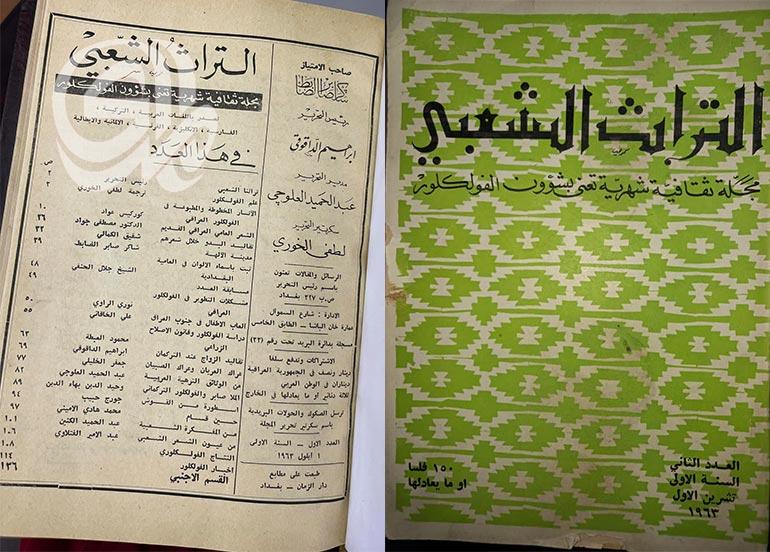 صاحب الامتياز
شاكر صابر الضابط
رئيس التحرير
ابراهيم الداقوقي
مدير التحرير
عبد الحميد العلوجي
سكرتير التحرير
لطفي الخوري
الرسائل والمقالات تعنون
باسم رئيس التحرير
ص.ب ٢٢٧ بغداد
الادارة : شارع السموأل
عمارة خان الباشا – الطابق الخامس
مسجلة بدائرة البريد تحت رقم (٢٢)
الاشتراكات وتدفع سلفا
دينار ونصف في الجمهورية العراقية
ديناران في الوطن العربي
ثلاثة دنانير أو ما يعادلها في الخارج
ترسل الصكوك والحوالات البريدية
باسم سكرتير تحرير المجلة
العدد الاول – السنة الاولى
١ ايلول ١٩٦٣
طبعت على مطابع
دار الزمان – بغداد
التراث الشعبي
مجلة ثقافية شهرية تعنى بشؤون الفولكلور
باللغات العربية ، التركية ،
الفارسية ، الانكليزية ، الفرنسية ، الالمانية والايطالية
في هذا العدد
ص
تراثنا الشعبي رئيس التحرير ٢
علم الفولكلور ترجمة لطفي الخوري ٣
الاثار المخطوطة والمطبوعة في
الفولكلور العراقي كوركيس عواد ١٠
الشعر العامي العراقي القديم الدكتور مصطفى جواد ٢٦
تقاليد البدو خلال شعرهم شفيق الكمالي ٣٢
مدينة الالهة شاكر صابر الضابط ٣٩
ثبت باسماء الالوان في العامية
البغدادية الشيخ جلال الحنفي ٤٨
مسابقة العدد ٤٩
مشكلات التطوير في الفولكلور
العراقي نوري الراوي ٥٠
العاب الاطفال في جنوب العراق علي الخاقاني ٥٥
دراسة الفولكلور وقانون الاصلاح
الزراعي محمود العبطة ٦٣
تقاليد الزواج عند التركمان ابراهيم الداقوقي ٦٩
عراك العربان وعراك الصبيان جعفر الخليلي ٧٧
من الوثائق الترفيهية العربية عبد الحميد العلوجي ٨٢
الملا صابر والفولكلور التركماني وحيد الدين بهاء الدين ٨٩
اسطورة جورج حبيب ٩٤
حسين قسام محمد هادي الاميني ٩٧
من المفكرة الشعبية عبد الحميد ١٠١
من عيون الشعر الشعبي عبد الامير الفتلاوي ١٠٦
النتاج الفولكلوري ١٠٨
اخبار الفولكلور ١١٤
القسم الاجنبي ١٣٦
التراث الشعبي
مجلة ثقافية شهرية تعنى بشؤون الفولكلور
العدد الثاني
السنة الاولى
تشرين الاول
١٩٦٣
١٥٠ فلسا
او ما يعادلها